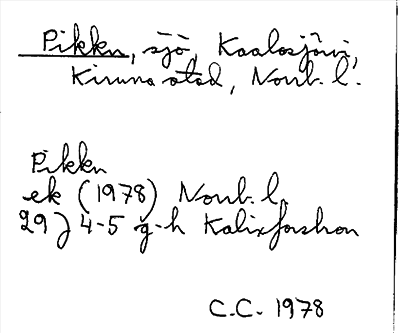 Pikku, sjö, Kaalasjärvi,
Kiruna stad, Norrb. l.
Pikku
ek (1978) Norrb. l.
29J 4-5 g-h Kalixforshon
C.C. 1978